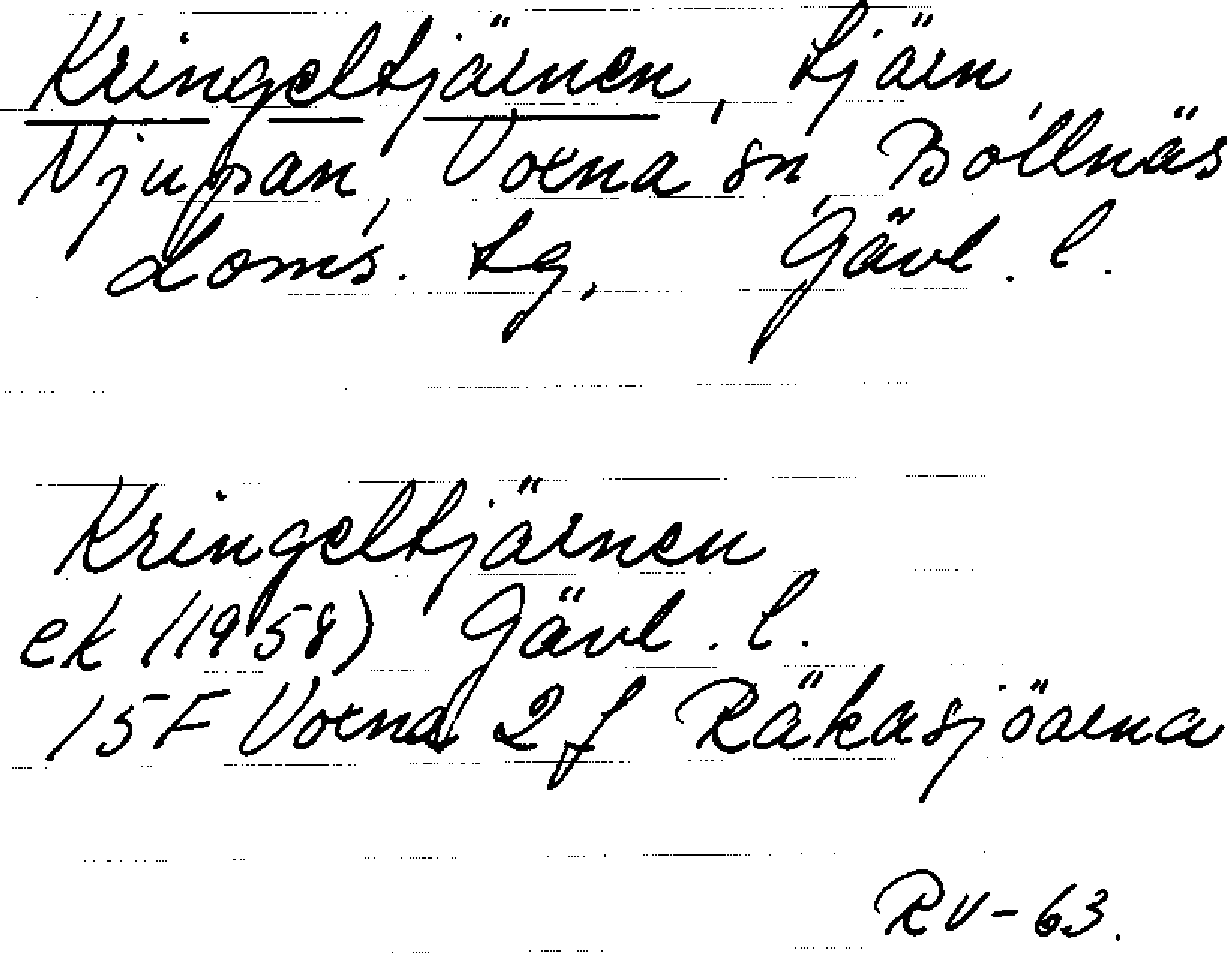 Kringeltjärnen, tjärn,
Njupan, Voxna sn, Bollnäs
doms. tg, Gävl. l.
Kringeltjärnen
ek (1958) Gävl. l.
15F Voxna 2 f Räkasjöarna
RV-63.